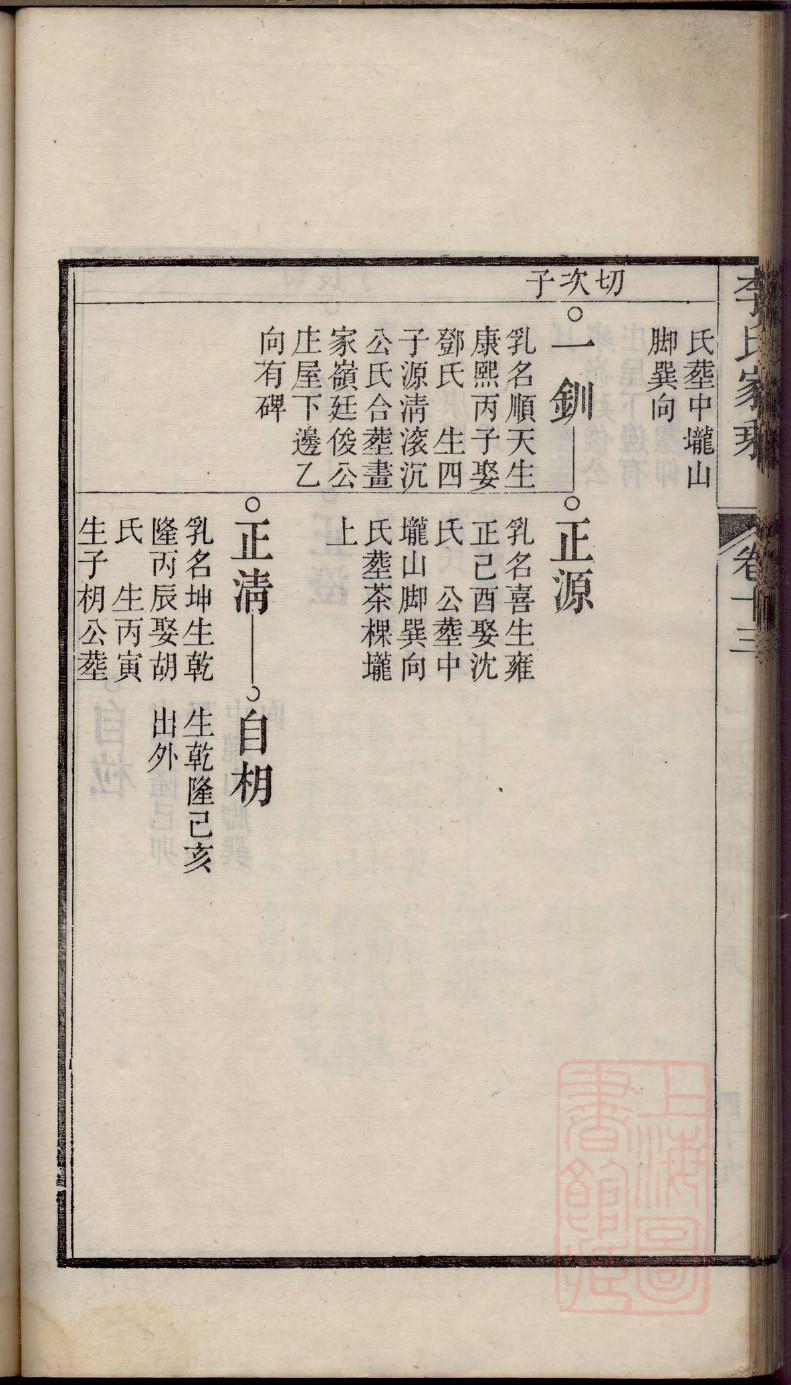 李氏家乘
卷十三
氏塟中壠山
脚巽向
切次子
一釧
乳名順天生
康熙丙子娶
鄧氏 生四
子源清滚沉
公氏合塟畫
家嶺廷俊公
庄屋下邊乙
向有碑
正源
乳名喜生雍
正己酉娶沈
氏 公塟中
壠山脚巽向
氏塟茶棵壠
上
正淸
乳名坤生乾
隆丙辰娶胡
氏 生丙寅
生子枬公塟
自枬
生乾隆己亥
出外
上海圖
書館藏